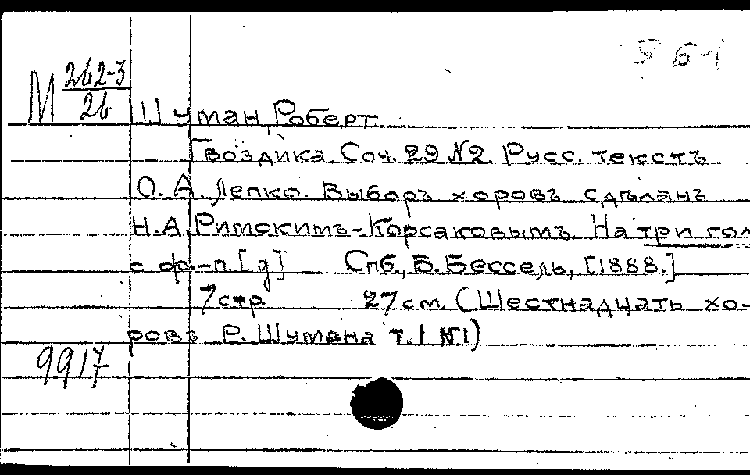 М 262-3
26
Шуман, Роберт.
Гвоздика. Соч. 29 №2. Русс. текстъ
О. А. Лепко. Выборъ хоровъ сдѣланъ
Н. А. Римскимъ-Корсаковымъ. На три гол
с ф.-п. [д] Спб., В. Бессель, [1888.]
7 стр 27 см. (Шестнадцать хо-
ровъ Р. Шумана т. I №1)
9917